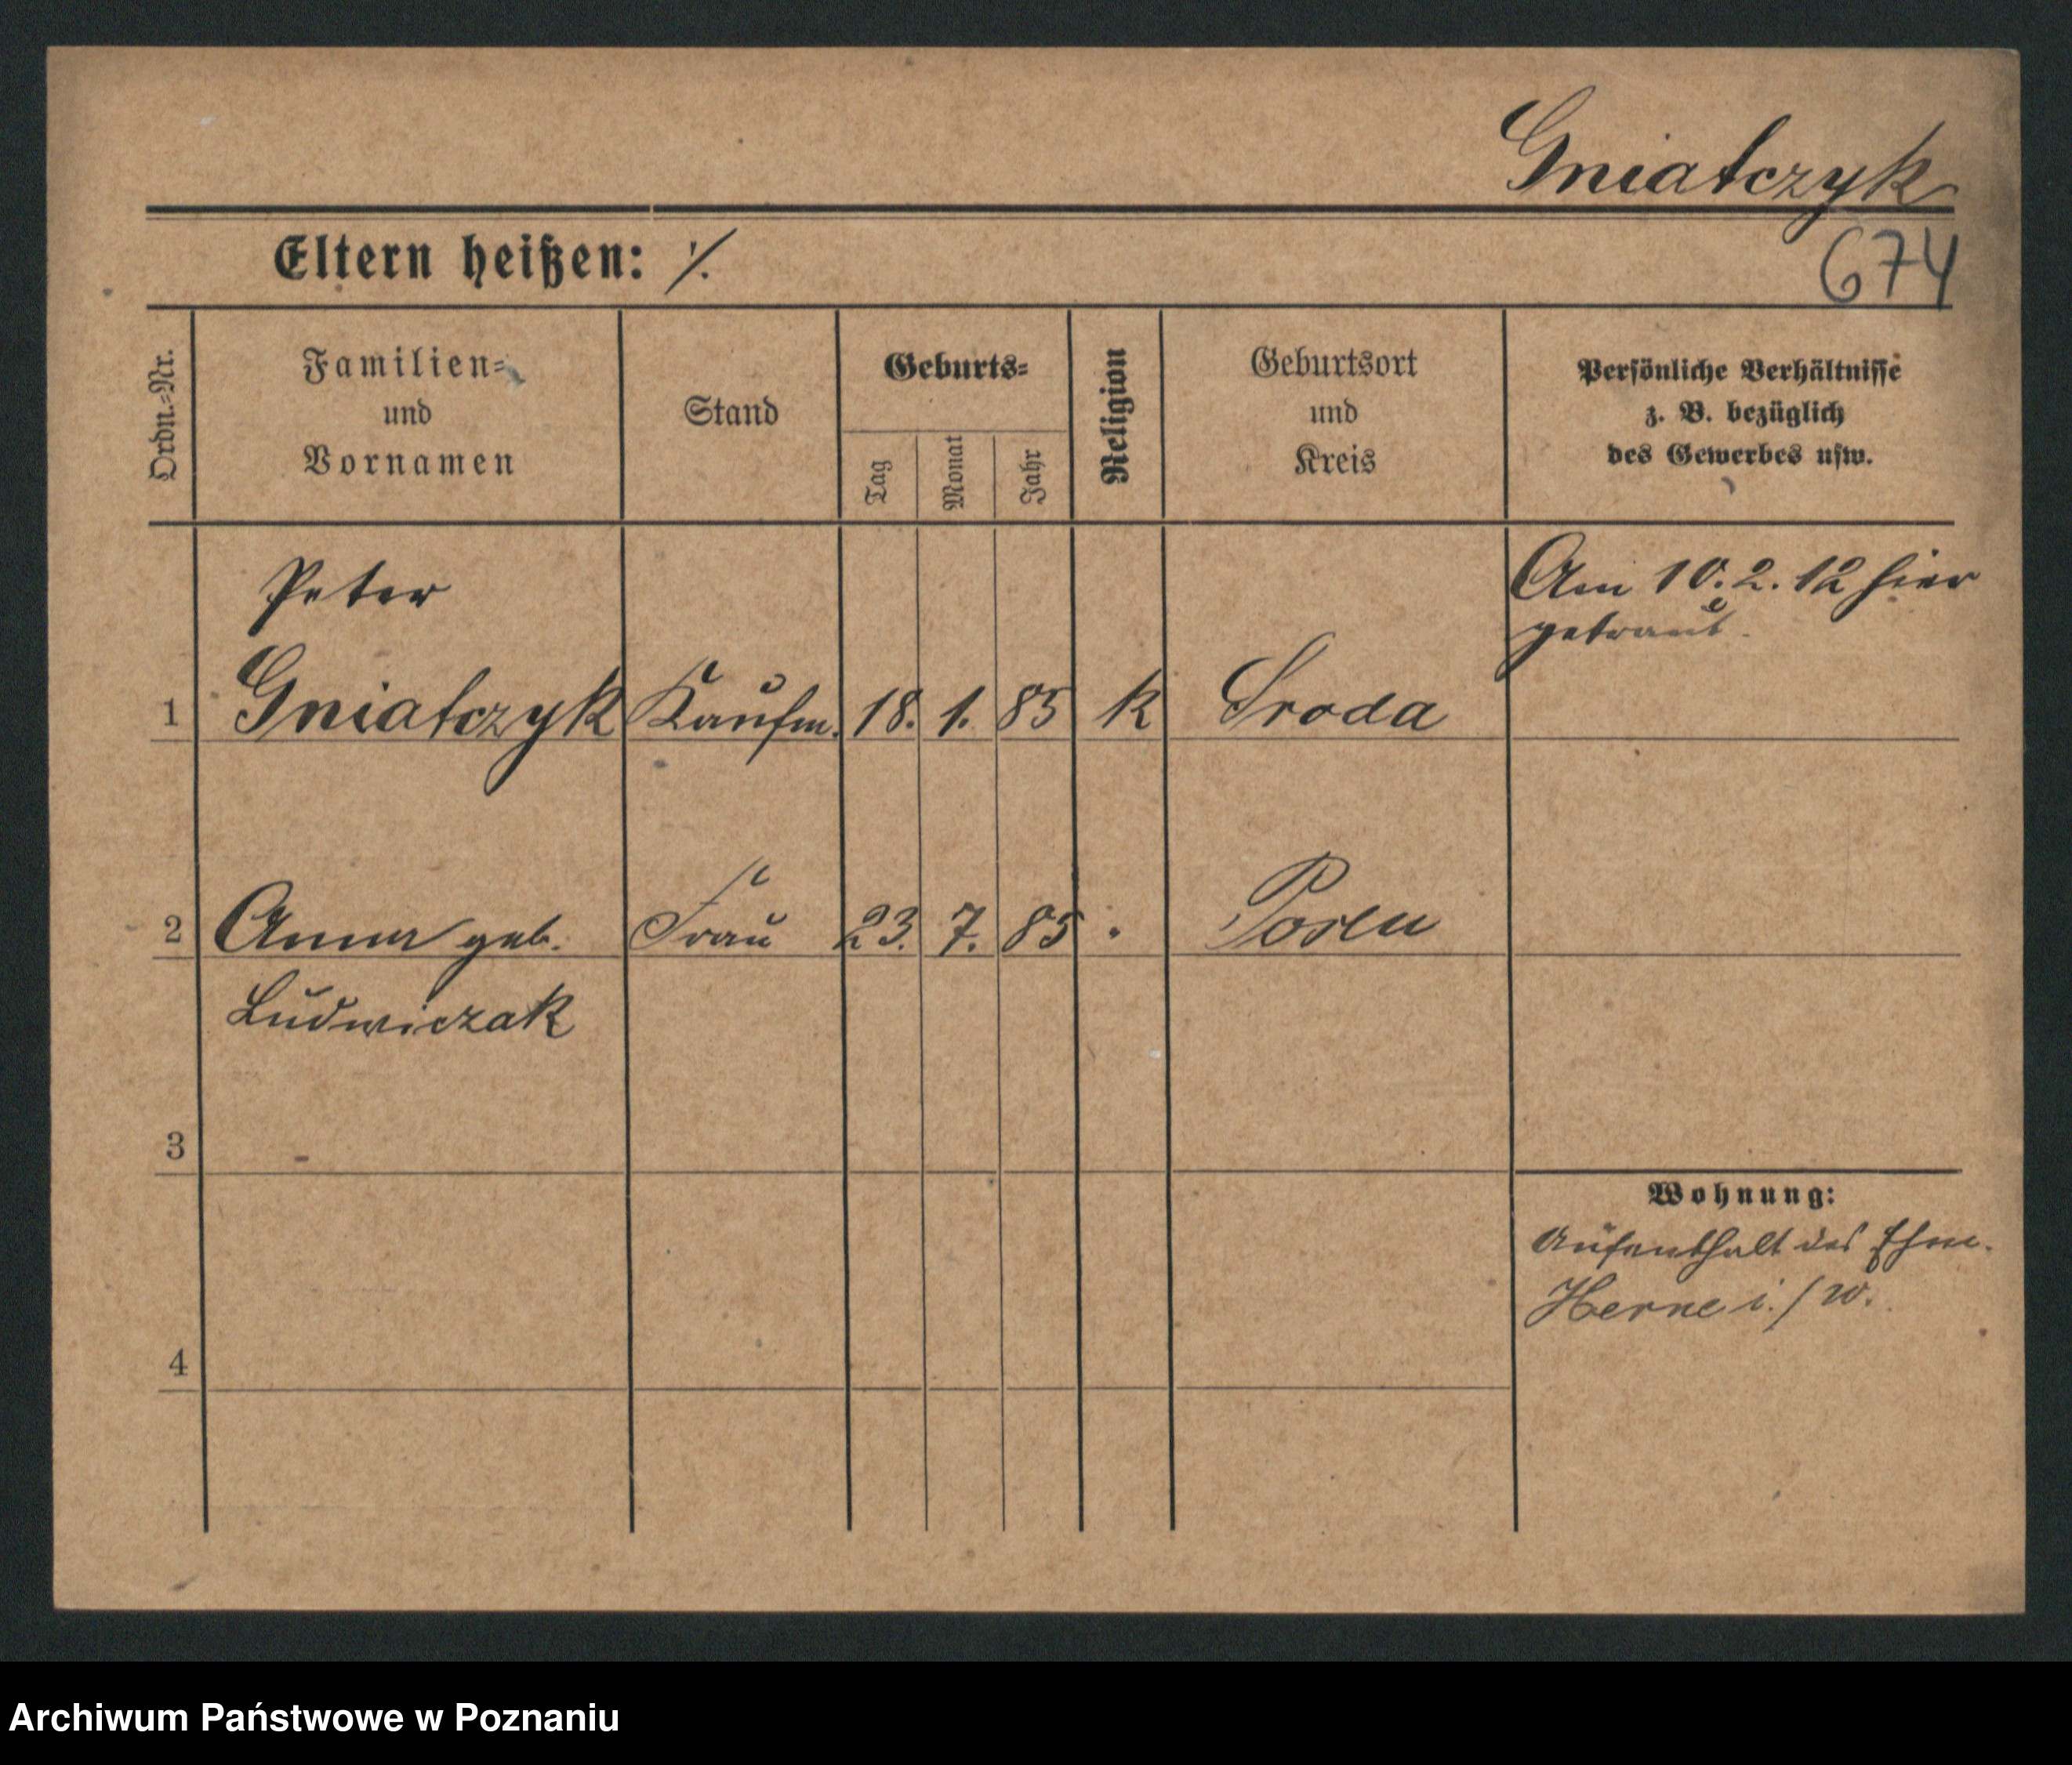 Gniatczyk
674
Eltern heißen: ·/.
Ordn.-Nr.
Familien-
und
Vornamen
Stand
Geburts-
Tag
Monat
Jahr
Religion
Geburtsort
und
Kreis
Persönliche Verhältnisse
z. B. bezüglich
des Gewerbes usw.
Am 10. 2. 12 hier
getraut.
Peter
1 Gniatczyk Kaufm. 18. 1. 85 k Sroda
2 Anna geb. Frau 23. 7. 85 " Posen
Ludwiczak
3
Wohnung:
Aufenthalt des Ehm.
Herne i./W.
4
Archiwum Państwowe w Poznaniu